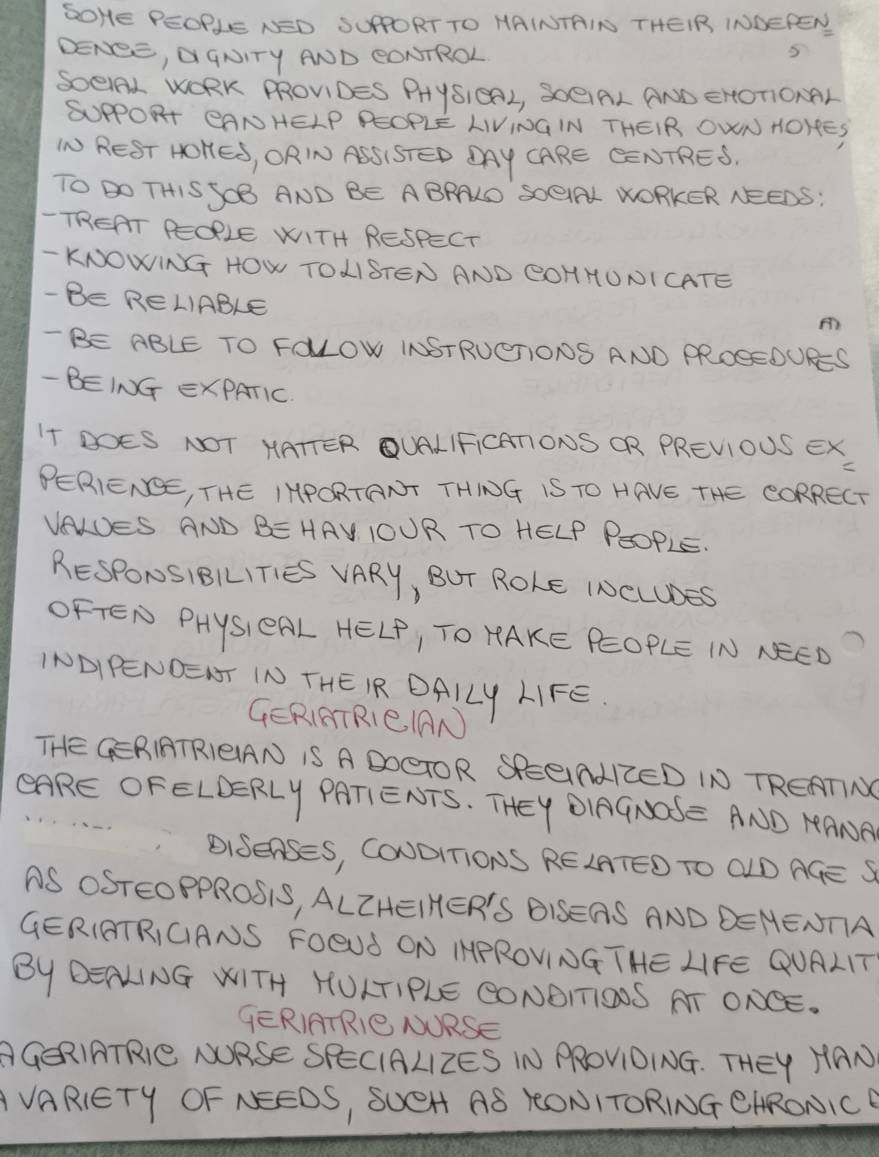 SOME PEOPLE NED SUPPORT TO MAINTAIN THEIR INDEPEN
DENCE, DIGNITY AND CONTROL
SOCIAL WORK PROVIDES PHYSICAL, SOCIAL AND EMOTIONAL
SUPPORT CAN HELP PEOPLE LIVING IN THEIR OWN HOMES,
IN REST HOMES, OR IN ASSISTED DAY CARE CENTRES.
TO DO THIS JOB AND BE A SOCIAL WORKER NEEDS:
- TREAT PEOPLE WITH RESPECT
- KNOWING HOW TO LISTEN AND COMMUNICATE
- BE RELIABLE
- BE ABLE TO FOLLOW INSTRUCTIONS AND PROCEDURES
- BEING EXPATIC.
IT DOES NOT MATTER QUALIFICATIONS OR PREVIOUS EX
PERIENCE, THE IMPORTANT THING IS TO HAVE THE CORRECT
VALUES AND BEHAVIOUR TO HELP PEOPLE.
RESPONSIBILITIES VARY, BUT ROLE INCLUDES
OFTEN PHYSICAL HELP, TO MAKE PEOPLE IN NEED
INDIPENDENT IN THEIR DAILY LIFE.
GERIATRICIAN
THE GERIATRICIAN IS A DOCTOR SPECIALIZED IN TREATING
CARE OF ELDERLY PATIENTS. THEY DIAGNOSE AND MANA
DISEASES, CONDITIONS RELATED TO OLD AGE S
AS OSTEOPPROSIS, ALZHEIMER'S DISEAS AND DEMENTIA
GERIATRICIANS FOCUS ON IMPROVING THE LIFE QUALIT
BY DEALING WITH MULTIPLE CONDITIONS AT ONCE.
GERIATRIC NURSE
A GERIATRIC NURSE SPECIALIZES IN PROVIDING. THEY MAN
A VARIETY OF NEEDS, SUCH AS MONITORING CHRONIC